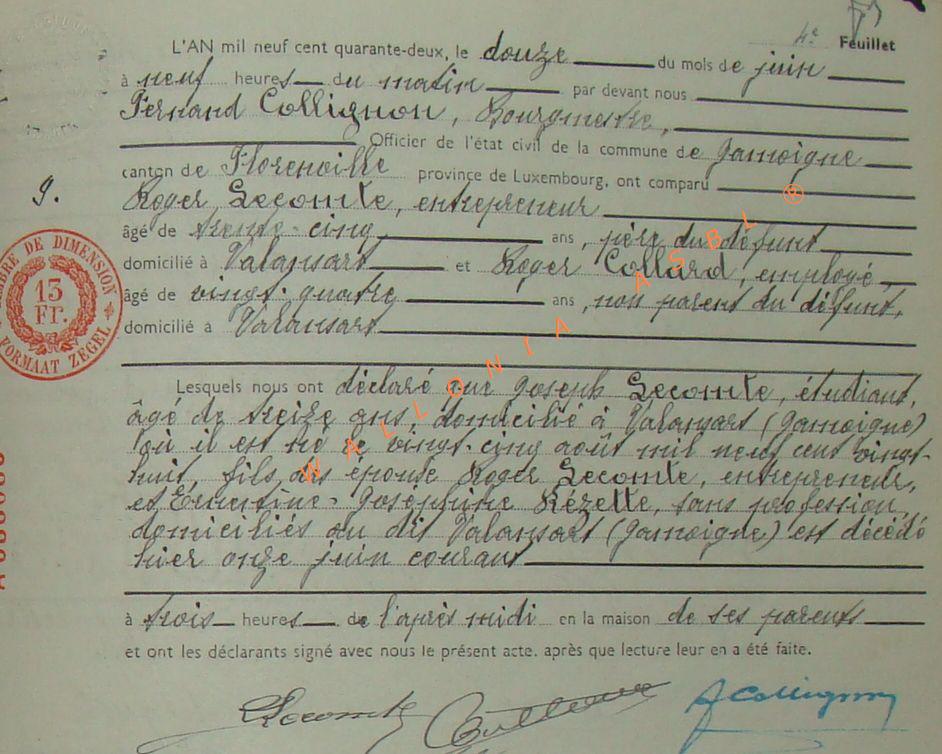 4e Feuillet
L'AN mil neuf cent quarante-deux, le douze du mois de juin
à neuf heures du matin par devant nous
Fernand Collignon, Bourgmestre,
Officier de l'état civil de la commune de Jamoigne
canton de Florenville province de Luxembourg, ont comparu
9.
Roger Lecomte, entrepreneur
âgé de trente-cinq ans, père du défunt
domicilié à Valansart et Roger Collard, employé,
âgé de vingt-quatre ans, non parent du défunt,
domicilié à Valansart
TIMBRE DE DIMENSION
13
Fr.
FORMAAT ZEGEL
Lesquels nous ont déclaré que Joseph Lecomte, étudiant,
âgé de treize ans, domicilié à Valansart (Jamoigne)
où il est né le vingt-cinq août mil neuf cent vingt-
huit, fils des époux Roger Lecomte, entrepreneur,
et Ernestine-Joséphine Rézette, sans profession,
domiciliés au dit Valansart (Jamoigne) est décédé
hier onze juin courant
à trois heures de l'après midi en la maison de ses parents
et ont les déclarants signé avec nous le présent acte. après que lecture leur en a été faite.
Lecomte Collard FCollignon
WALLONIA ASBL ®